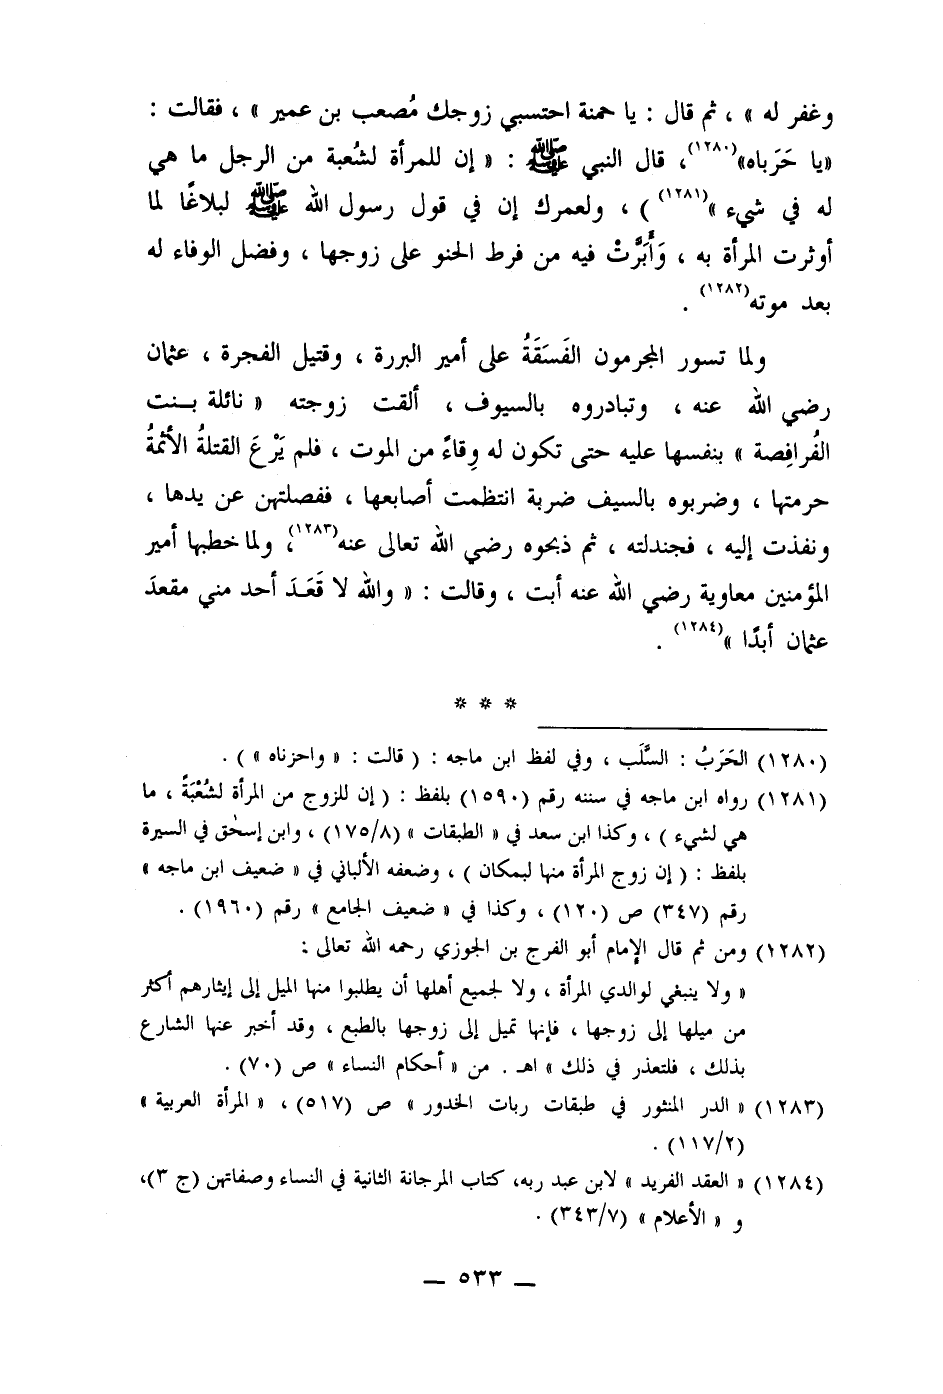 وغفر له » ، ثم قال : يا حمنة احتسبي زوجك مُصعب بن عمير » ، فقالت :
«يا حَرَباه»(١٢٨٠)، قال النبي ﷺ : « إن للمرأة لشُعبة من الرجل ما هي
له في شيء »(١٢٨١) ) ، ولعمرك إن في قول رسول الله ﷺ لبلاغًا لما
أوثرت المرأة به ، وَأَبَرَّتْ فيه من فرط الحنو على زوجها ، وفضل الوفاء له
بعد موته(١٢٨٢) .
ولما تسور المجرمون الفَسَقَةُ على أمير البررة ، وقتيل الفجرة ، عثمان
رضي الله عنه ، وتبادروه بالسيوف ، ألقت زوجته « نائلة بـنت
الفُرافِصة » بنفسها عليه حتى تكون له وِقاءً من الموت ، فلم يَرْعَ القتلةُ الأثمةُ
حرمتها ، وضربوه بالسيف ضربة انتظمت أصابعها ، ففصلتهن عن يدها ،
ونفذت إليه ، فجندلته ، ثم ذبحوه رضي الله تعالى عنه(١٢٨٣)، ولما خطبها أمير
المؤمنين معاوية رضي الله عنه أبت ، وقالت : « والله لا قَعَدَ أحد مني مقعدَ
عثمان أبدًا »(١٢٨٤) .
* * *
(١٢٨٠) الحَرَبُ : السَّلَب ، وفي لفظ ابن ماجه : ( قالت : « واحزناه » ) .
(١٢٨١) رواه ابن ماجه في سننه رقم (١٥٩٠) بلفظ : ( إن للزوج من المرأة لشُعْبَةً ، ما
هي لشيء ) ، وكذا ابن سعد في « الطبقات » (١٧٥/٨) ، وابن إسحٰق في السيرة
بلفظ : ( إن زوج المرأة منها لبمكان ) ، وضعفه الألباني في « ضعيف ابن ماجه »
رقم (٣٤٧) ص (١٢٠) ، وكذا في « ضعيف الجامع » رقم (١٩٦٠) .
(١٢٨٢) ومن ثم قال الإمام أبو الفرج بن الجوزي رحمه الله تعالى :
« ولا ينبغي لوالدي المرأة ، ولا لجميع أهلها أن يطلبوا منها الميل إلى إيثارهم أكثر
من ميلها إلى زوجها ، فإنها تميل إلى زوجها بالطبع ، وقد أخبر عنها الشارع
بذلك ، فلتعذر في ذلك » اهـ . من « أحكام النساء » ص (٧٠) .
(١٢٨٣) « الدر المنثور في طبقات ربات الخدور » ص (٥١٧) ، « المرأة العربية »
(١١٧/٢) .
(١٢٨٤) « العقد الفريد » لابن عبد ربه، كتاب المرجانة الثانية في النساء وصفاتهن (ج ٣)،
و « الأعلام » (٣٤٣/٧) .
— ٥٣٣ —